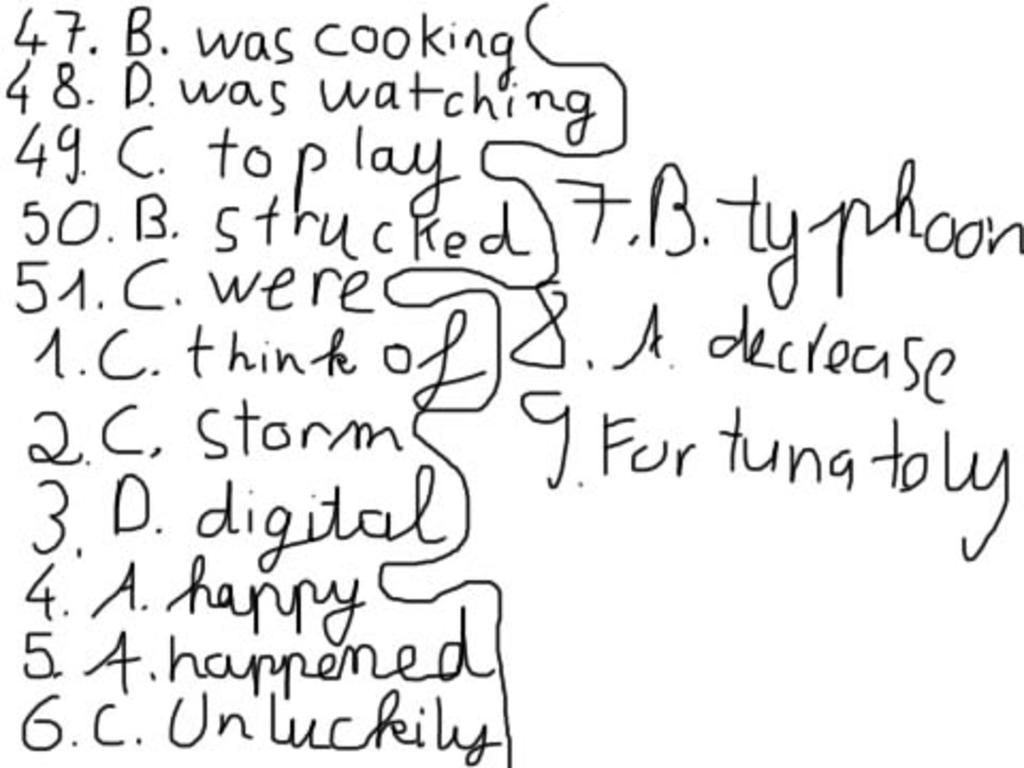 47. B. was cooking
48. D. was watching
49. C. to play
50. B. strucked
51. C. were
1. C. think of
2. C. storm
3. D. digital
4. A. happy
5. A. happened
6. C. Unluckily
7. B. typhoon
8. A. decrease
9. Furtunatoly